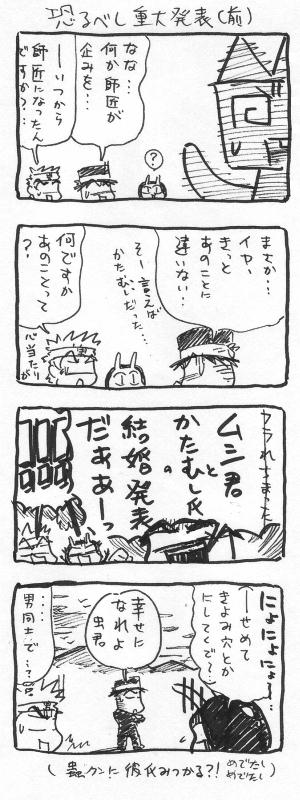 恐るべし重大発表(前)
なな…
何か師匠が
企みを…
——いつから
師匠になったん
ですか?…
?
まさか…
イヤ、
きっと
あのことに
違いない…
そー言えば
かたむしだった…
何ですか
あのことって
?
心当たりが
ムシ君
と
かたむし氏
の
結婚発表
だぁあーっ
にょにょにょ〜…
——せめて
きよみ穴とか
にしてくで〜…
幸せに
なれよ
虫君
……
男同士で…?
(蟲クンに彼氏みつかる?! めでたし めでたし)